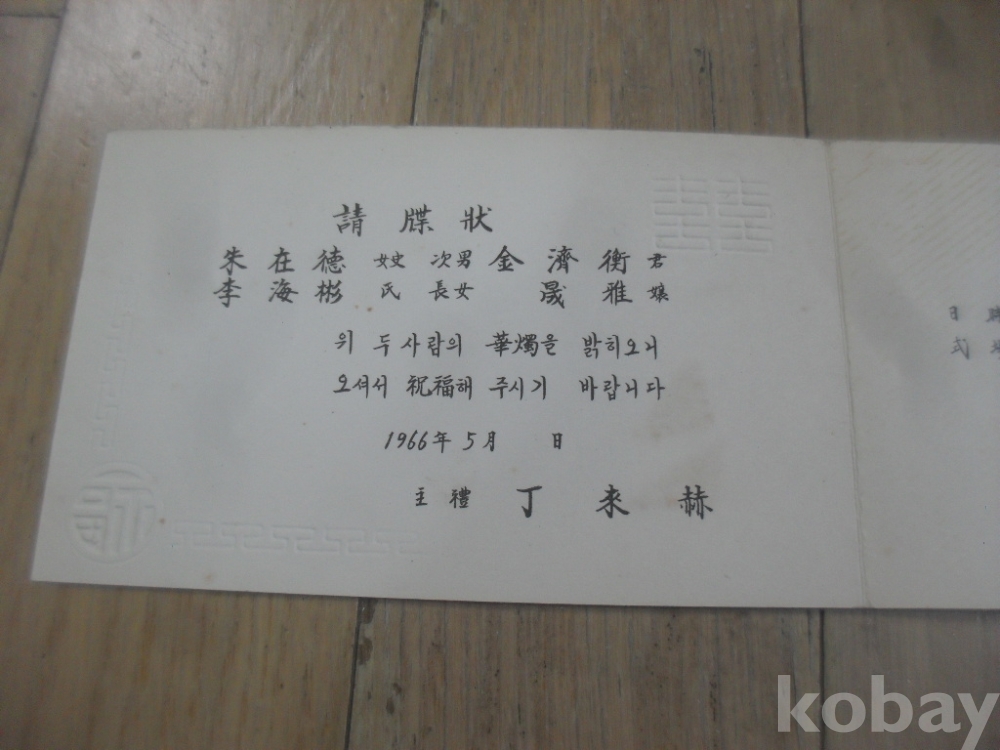 請牒狀
朱在德 女史 次男 金濟衡 君
李海彬 氏 長女 晟雅 孃
위 두사람의 華燭을 밝히오니
오셔서 祝福해 주시기 바랍니다
1966年 5月 日
主禮 丁來赫
日
式
kobay